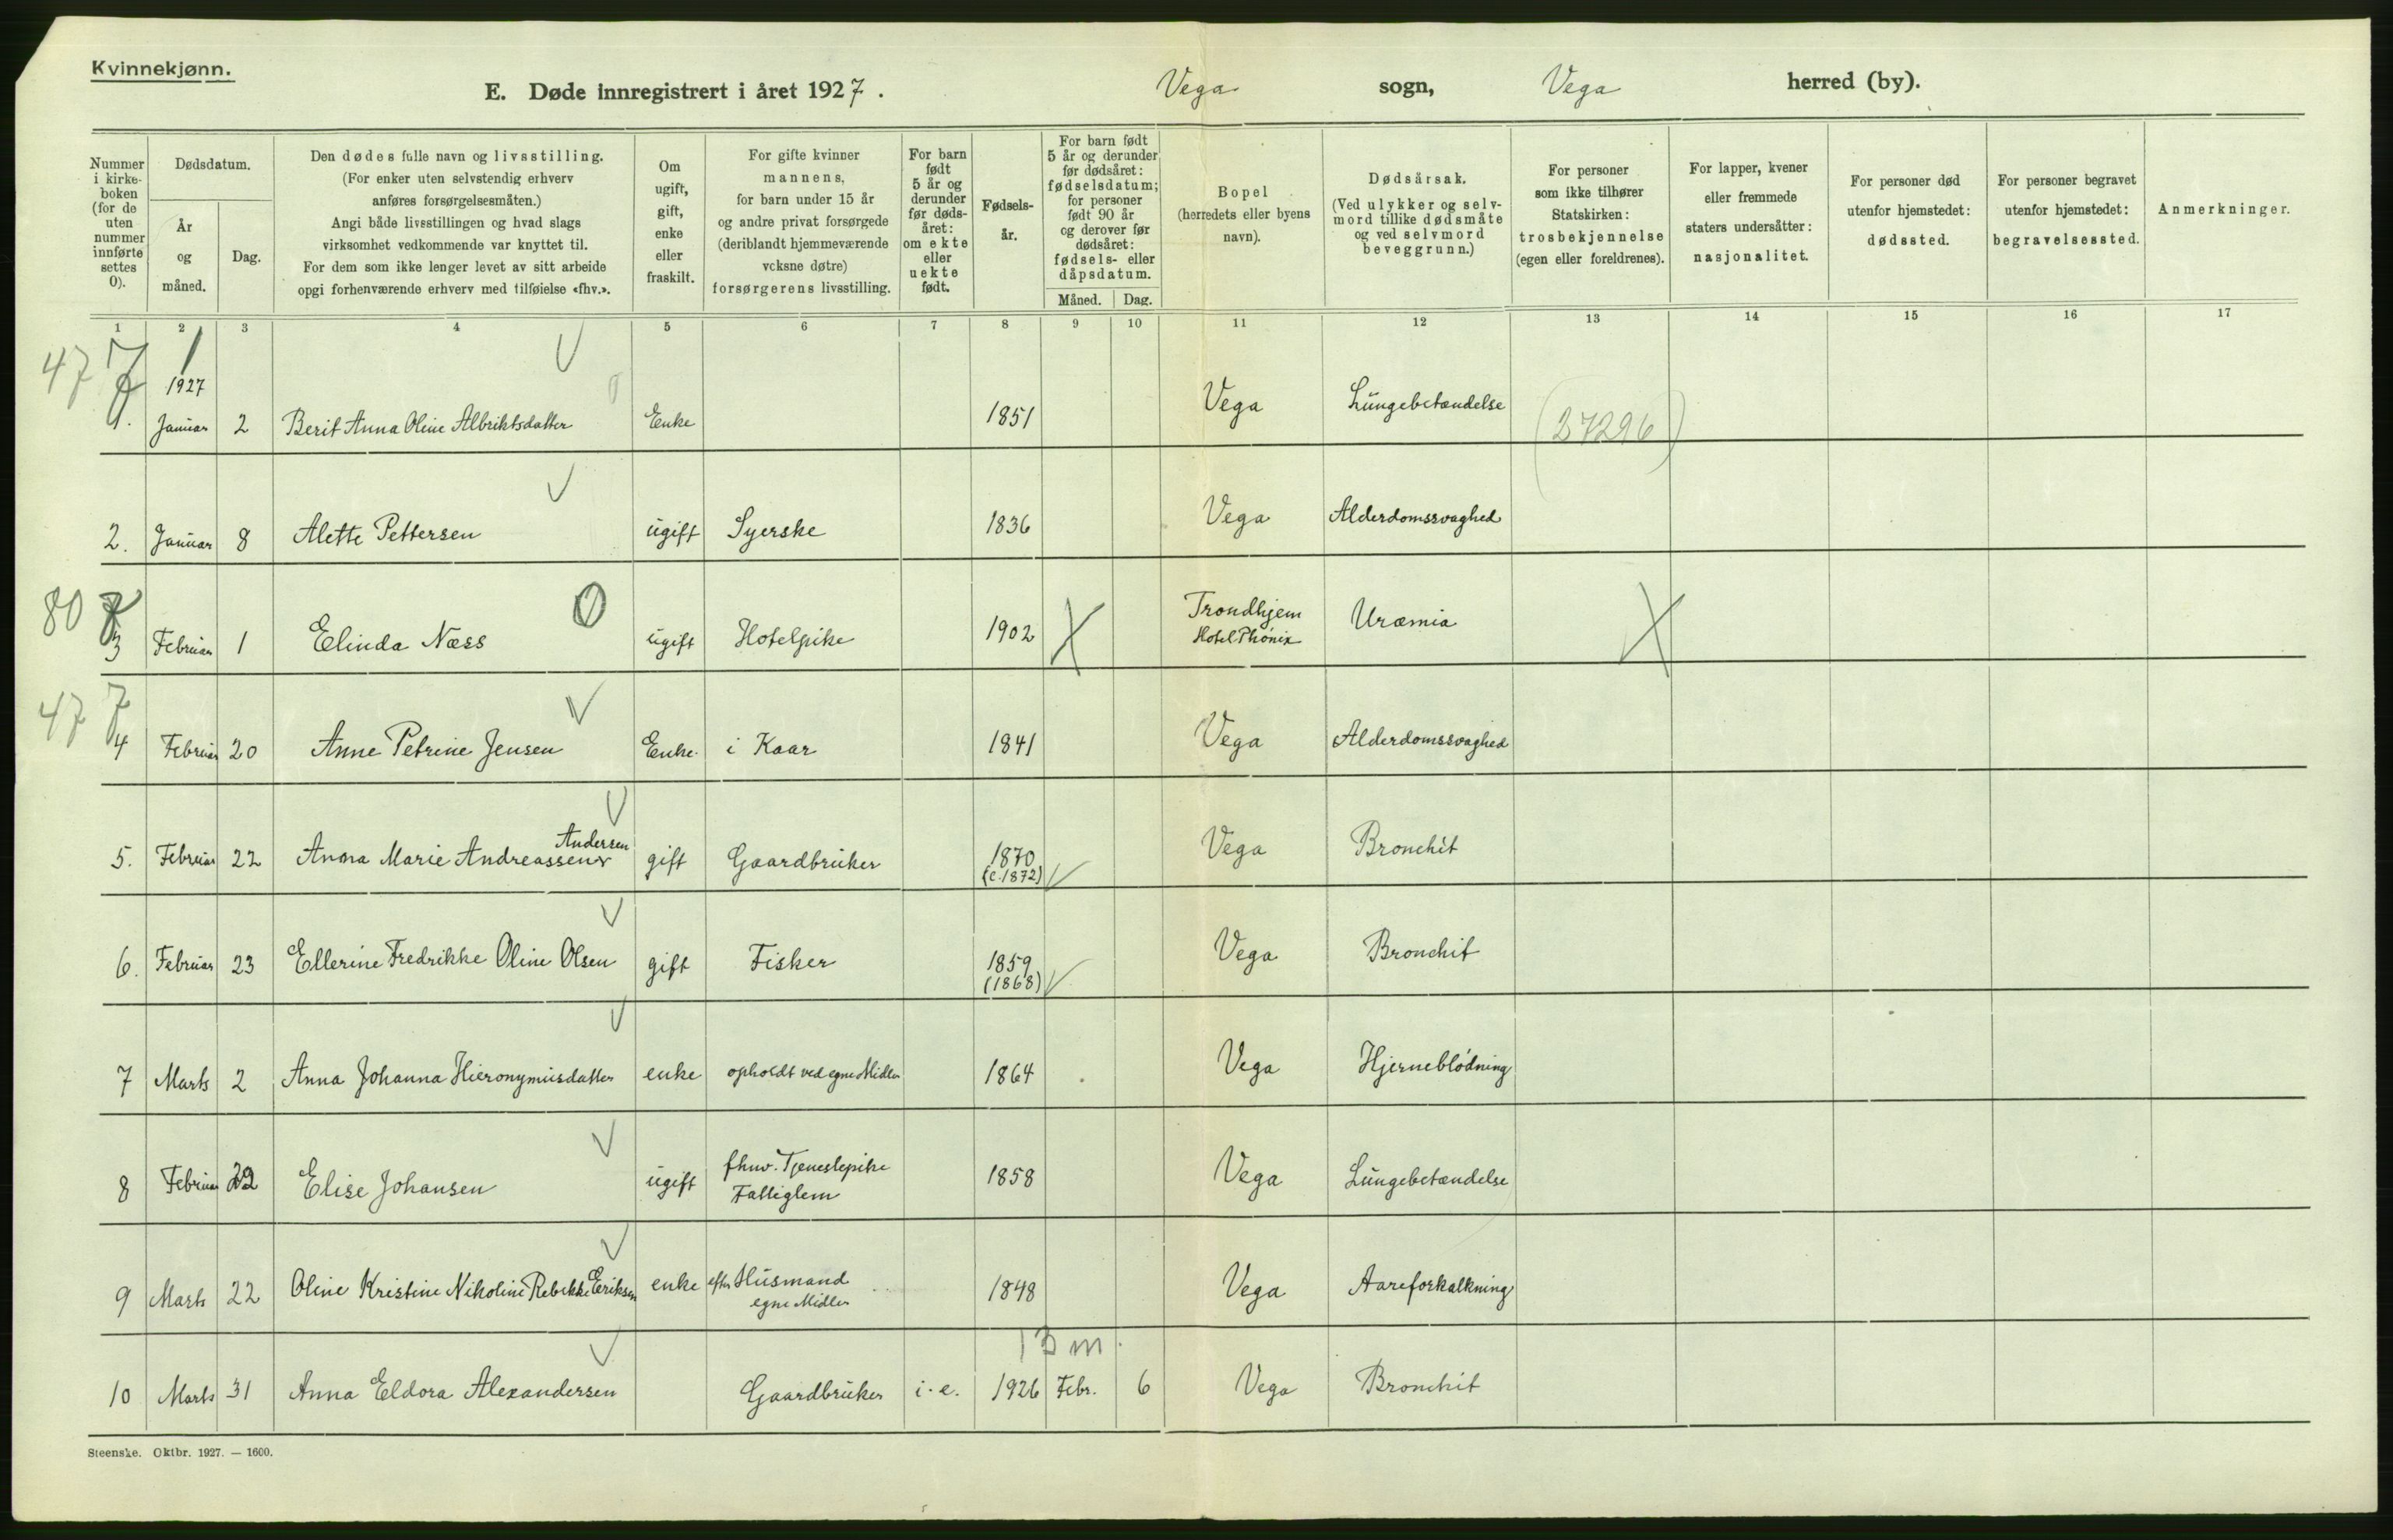 Kvinnekjønn.
E. Døde innregistrert i året 1927. Vega sogn, Vega herred (by).
Nummer i kirkeboken (for de uten nummer innførte settes 0).
Dødsdatum.
År og måned.
Dag.
Den dødes fulle navn og livsstilling.
(For enker uten selvstendig erhverv
anføres forsørgelsesmåten.)
Angi både livsstillingen og hvad slags
virksomhet vedkommende var knyttet til.
For dem som ikke lenger levet av sitt arbeide
opgi forhenværende erhverv med tilføielse «fhv.».
Om ugift, gift, enke eller fraskilt.
For gifte kvinner
mannens,
for barn under 15 år
og andre privat forsørgede
(deriblandt hjemmeværende
vcksne døtre)
forsørgerens livsstilling.
For barn født 5 år og derunder før døds-året: om ekte eller uekte født.
Fødsels-år.
For barn født
5 år og derunder
før dødsåret:
fødselsdatum;
for personer
født 90 år
og derover før
dødsåret:
fødsels- eller
dåpsdatum.
Måned. Dag.
Bopel
(herredets eller byens
navn).
Dødsårsak.
(Ved ulykker og selv-
mord tillike dødsmåte
og ved selvmord
beveggrunn.)
For personer
som ikke tilhører
Statskirken:
trosbekjennelse
(egen eller foreldrenes).
For lapper, kvener
eller fremmede
staters undersåtter:
nasjonalitet.
For personer død
utenfor hjemstedet:
dødssted.
For personer begravet
utenfor hjemstedet:
begravelsessted.
Anmerkninger.
1 2 3 4 5 6 7 8 9 10 11 12 13 14 15 16 17
47 7 1
1927
1. Januar 2 Berit Anna Oline Albriktsdatter Enke 1851 Vega Lungebetændelse (37296)
2. Januar 8 Alette Pettersen ugift Syerske 1836 Vega Alderdomssvaghed
80 7
3 Februar 1 Elinda Næss 0 ugift Hotelpike 1902 X Trondhjem Hotel Phönix Uræmia X
47 7
4 Februar 20 Anne Petrine Jensen Enke. i Kaar 1841 Vega Alderdomssvaghed
Andersen
5. Februar 22 Anna Marie Andreassen gift Gaardbruker 1870 (c. 1872) Vega Bronchit
6. Februar 23 Ellerine Fredrikke Oline Olsen gift Fisker 1859 (1868) Vega Bronchit
7 Marts 2 Anna Johanna Hieronymusdatter enke opholdt ved egne Midler 1864 Vega Hjerneblödning
8 Februar 22 Elise Johansen ugift fhnv. Tjenestepike Fattiglem 1858 Vega Lungebetændelse
9 Marts 22 Oline Kristine Nikoline Rebekke Eriksen enke efter Husmand egne Midler 1848 Vega Aareforkalkning
13 m.
10 Marts 31 Anna Eldora Alexandersen Gaardbruker i. e. 1926 Febr. 6 Vega Bronchit
Steenske. Oktbr. 1927. — 1600.